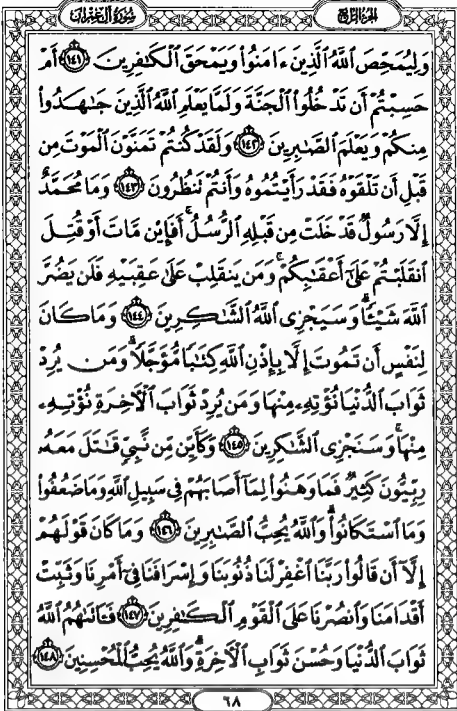 الجُزْءُ الرَّابِعُ
سُورَةُ آلِ عِمْرَانَ
وَلِيُمَحِّصَ ٱللَّهُ ٱلَّذِينَ ءَامَنُوا۟ وَيَمْحَقَ ٱلْكَٰفِرِينَ ١٤١ أَمْ
حَسِبْتُمْ أَن تَدْخُلُوا۟ ٱلْجَنَّةَ وَلَمَّا يَعْلَمِ ٱللَّهُ ٱلَّذِينَ جَٰهَدُوا۟
مِنكُمْ وَيَعْلَمَ ٱلصَّٰبِرِينَ ١٤٢ وَلَقَدْ كُنتُمْ تَمَنَّوْنَ ٱلْمَوْتَ مِن
قَبْلِ أَن تَلْقَوْهُ فَقَدْ رَأَيْتُمُوهُ وَأَنتُمْ تَنظُرُونَ ١٤٣ وَمَا مُحَمَّدٌ
إِلَّا رَسُولٌ قَدْ خَلَتْ مِن قَبْلِهِ ٱلرُّسُلُ ۚ أَفَإِي۟ن مَّاتَ أَوْ قُتِلَ
ٱنقَلَبْتُمْ عَلَىٰٓ أَعْقَٰبِكُمْ ۚ وَمَن يَنقَلِبْ عَلَىٰ عَقِبَيْهِ فَلَن يَضُرَّ
ٱللَّهَ شَيْـًٔا ۗ وَسَيَجْزِى ٱللَّهُ ٱلشَّٰكِرِينَ ١٤٤ وَمَا كَانَ
لِنَفْسٍ أَن تَمُوتَ إِلَّا بِإِذْنِ ٱللَّهِ كِتَٰبًا مُّؤَجَّلًا ۗ وَمَن يُرِدْ
ثَوَابَ ٱلدُّنْيَا نُؤْتِهِۦ مِنْهَا وَمَن يُرِدْ ثَوَابَ ٱلْءَاخِرَةِ نُؤْتِهِۦ
مِنْهَا ۚ وَسَنَجْزِى ٱلشَّٰكِرِينَ ١٤٥ وَكَأَيِّن مِّن نَّبِىٍّ قَٰتَلَ مَعَهُۥ
رِبِّيُّونَ كَثِيرٌ فَمَا وَهَنُوا۟ لِمَآ أَصَابَهُمْ فِى سَبِيلِ ٱللَّهِ وَمَا ضَعُفُوا۟
وَمَا ٱسْتَكَانُوا۟ ۗ وَٱللَّهُ يُحِبُّ ٱلصَّٰبِرِينَ ١٤٦ وَمَا كَانَ قَوْلَهُمْ
إِلَّآ أَن قَالُوا۟ رَبَّنَا ٱغْفِرْ لَنَا ذُنُوبَنَا وَإِسْرَافَنَا فِىٓ أَمْرِنَا وَثَبِّتْ
أَقْدَامَنَا وَٱنصُرْنَا عَلَى ٱلْقَوْمِ ٱلْكَٰفِرِينَ ١٤٧ فَـَٔاتَىٰهُمُ ٱللَّهُ
ثَوَابَ ٱلدُّنْيَا وَحُسْنَ ثَوَابِ ٱلْءَاخِرَةِ ۗ وَٱللَّهُ يُحِبُّ ٱلْمُحْسِنِينَ ١٤٨
٦٨